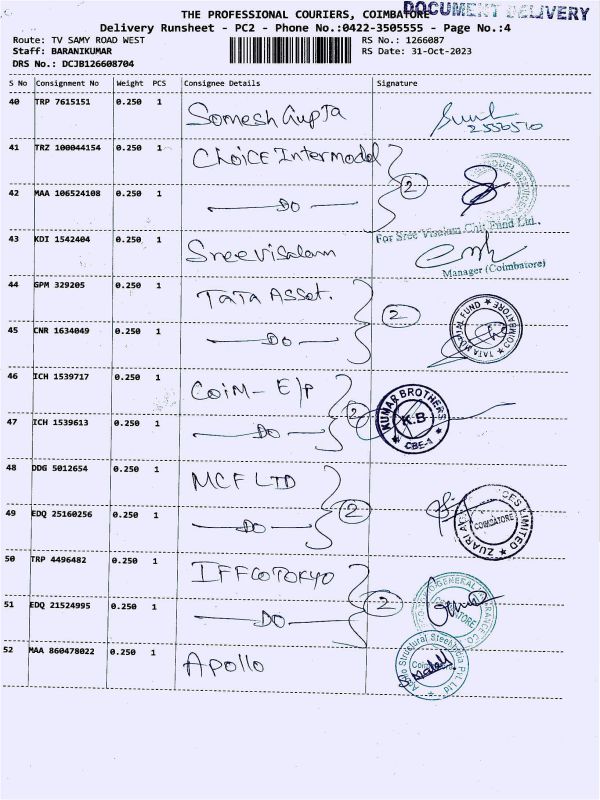 DOCUMENT DELIVERY
THE PROFESSIONAL COURIERS, COIMBATORE
Delivery Runsheet - PC2 - Phone No.:0422-3505555 - Page No.:4
Route: TV SAMY ROAD WEST
RS No.: 1266087
Staff: BARANIKUMAR
RS Date: 31-Oct-2023
DRS No.: DCJB126608704
S No Consignment No Weight PCS Consignee Details Signature
40 TRP 7615151 0.250 1 Somesh Gupta
2556510
41 TRZ 100044154 0.250 1 Choice Intermodel
2
42 MAA 106524108 0.250 1 DO
For Sree Visalam Chit Fund Ltd.
43 KDI 1542404 0.250 1 Sree Visalam
Manager (Coimbatore)
44 GPM 329205 0.250 1 TATA Asset.
2
MUTUAL FUND COIMBATORE TATA
45 CNR 1634049 0.250 1 DO
46 ICH 1539717 0.250 1 Coim - E/P
2
KUMAR BROTHERS
K.B
CBE-1
47 ICH 1539613 0.250 1 DO
48 DDG 5012654 0.250 1 MCF LTD
2
COIMBATORE
49 EDQ 25160256 0.250 1 DO
50 TRP 4496482 0.250 1 IFFCO TOKYO
2
51 EDQ 21524995 0.250 1 DO
52 MAA 860478022 0.250 1 Apollo